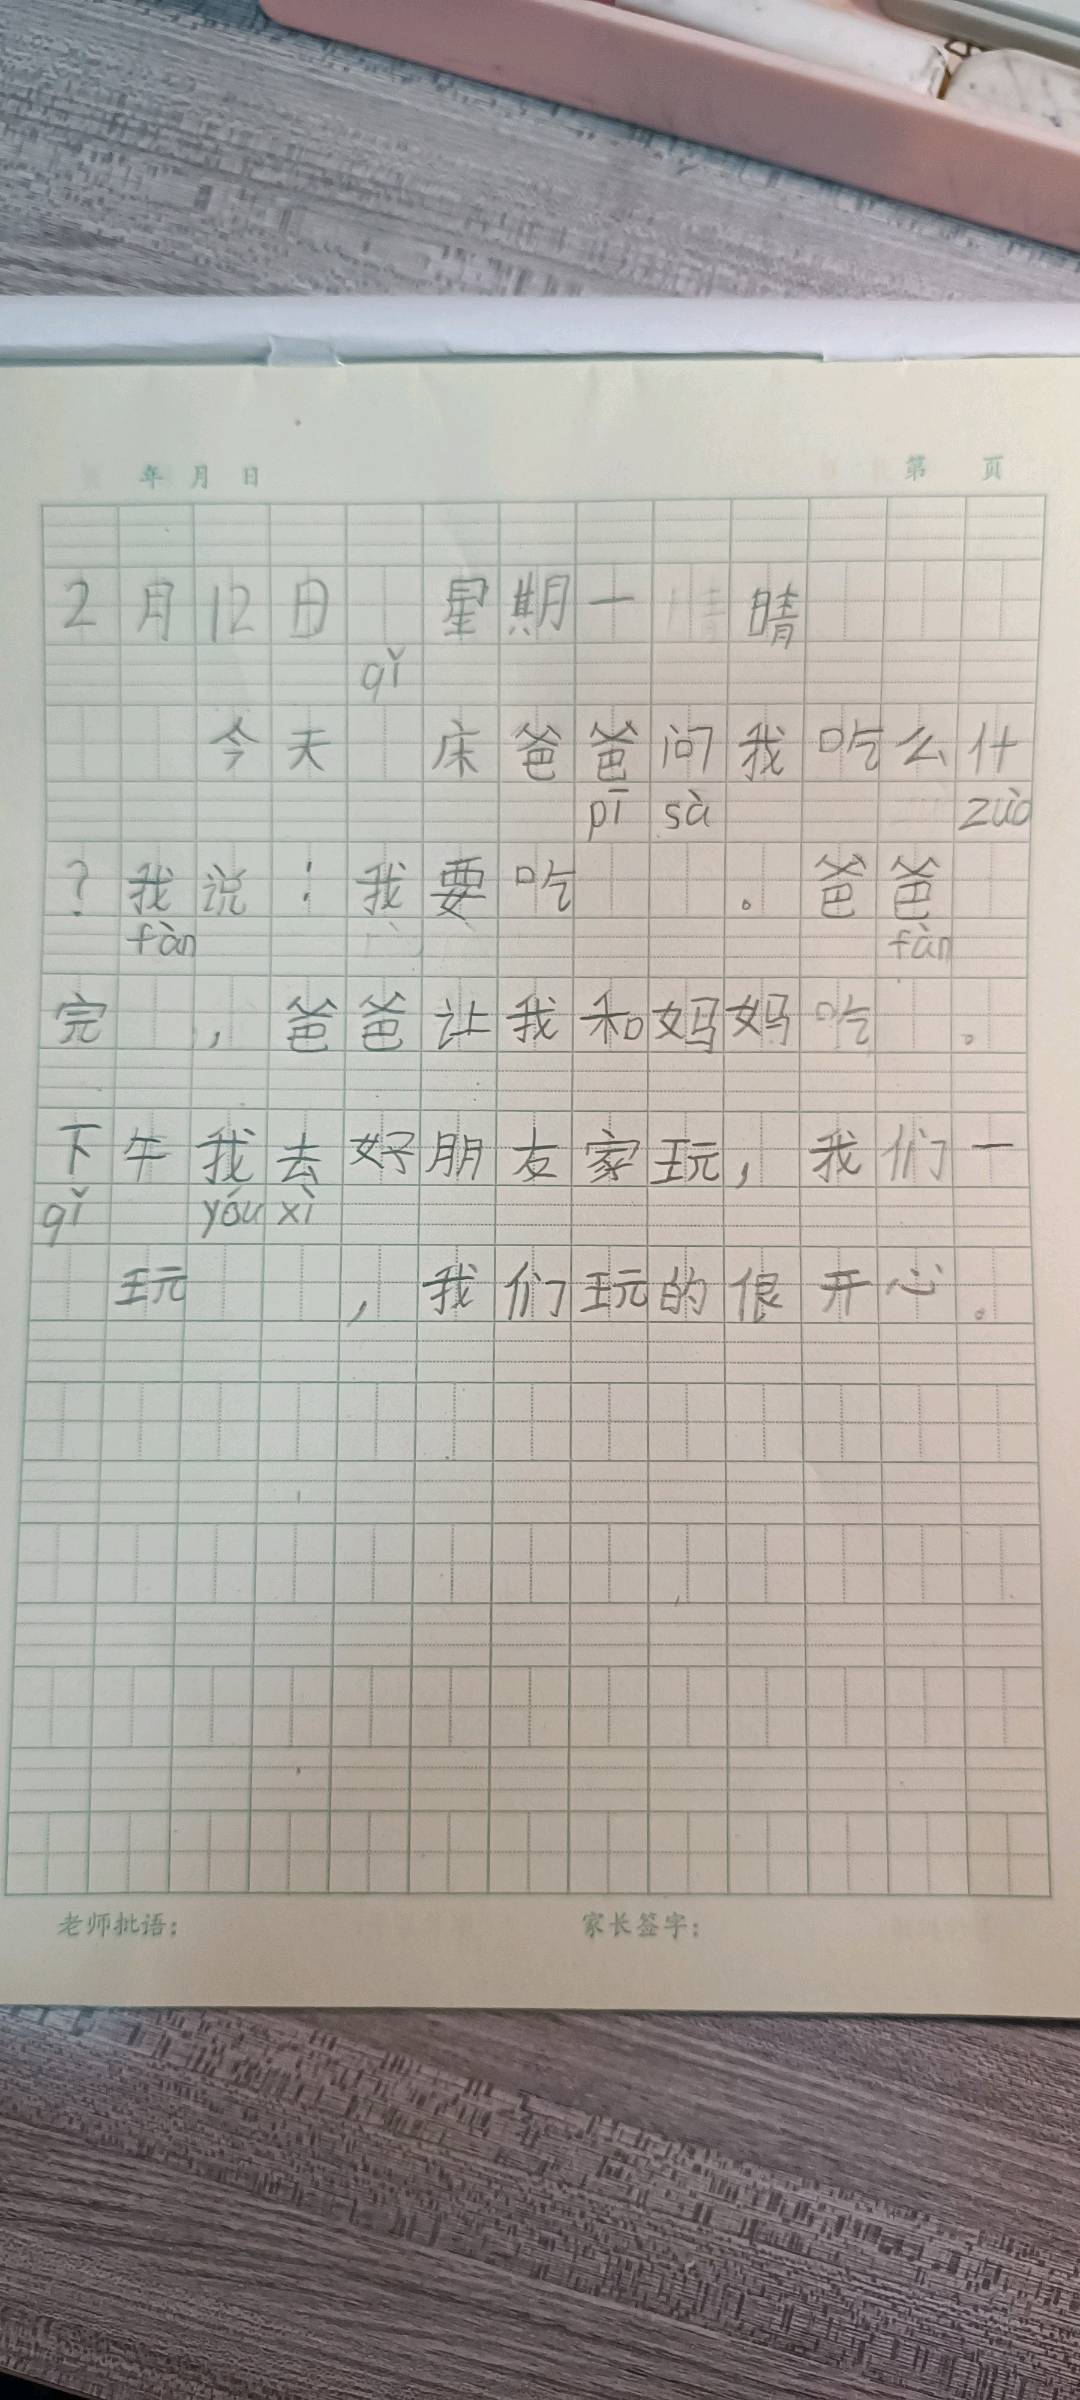 年 月 日 第 页
2月12日 星期一 晴
qǐ
今天 床爸爸问我吃么什
pī sà zuò
?我说:我要吃 。爸爸
fàn fàn
完 ,爸爸让我和妈妈吃 。
下午我去好朋友家玩,我们一
qǐ yóu xì
玩 ,我们玩的很开心。
老师批语: 家长签字: